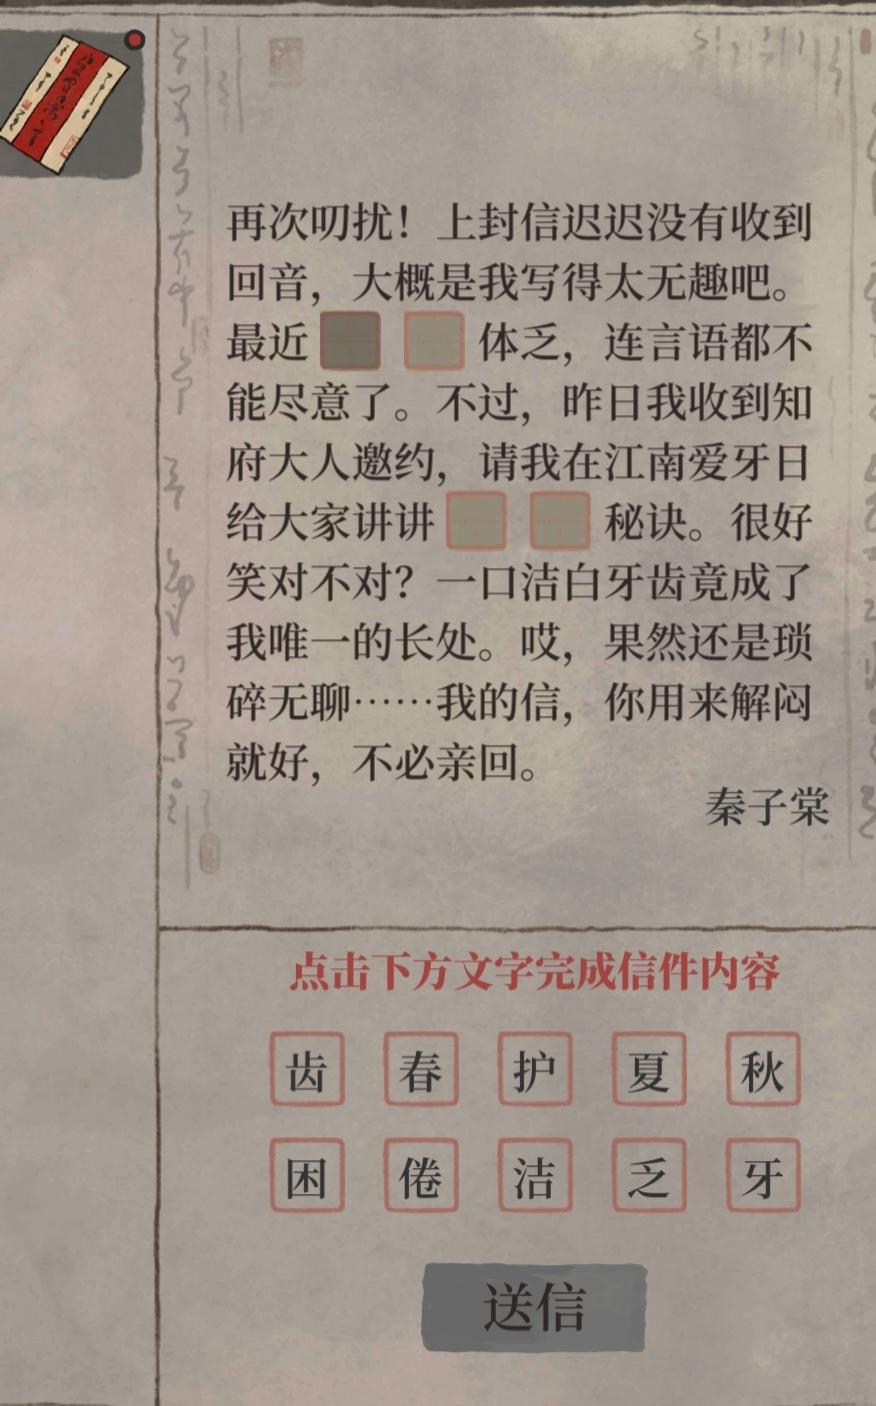 再次叨扰！上封信迟迟没有收到
回音，大概是我写得太无趣吧。
最近 体乏，连言语都不
能尽意了。不过，昨日我收到知
府大人邀约，请我在江南爱牙日
给大家讲讲 秘诀。很好
笑对不对？一口洁白牙齿竟成了
我唯一的长处。哎，果然还是琐
碎无聊……我的信，你用来解闷
就好，不必亲回。
秦子棠
点击下方文字完成信件内容
齿 春 护 夏 秋
困 倦 洁 乏 牙
送信